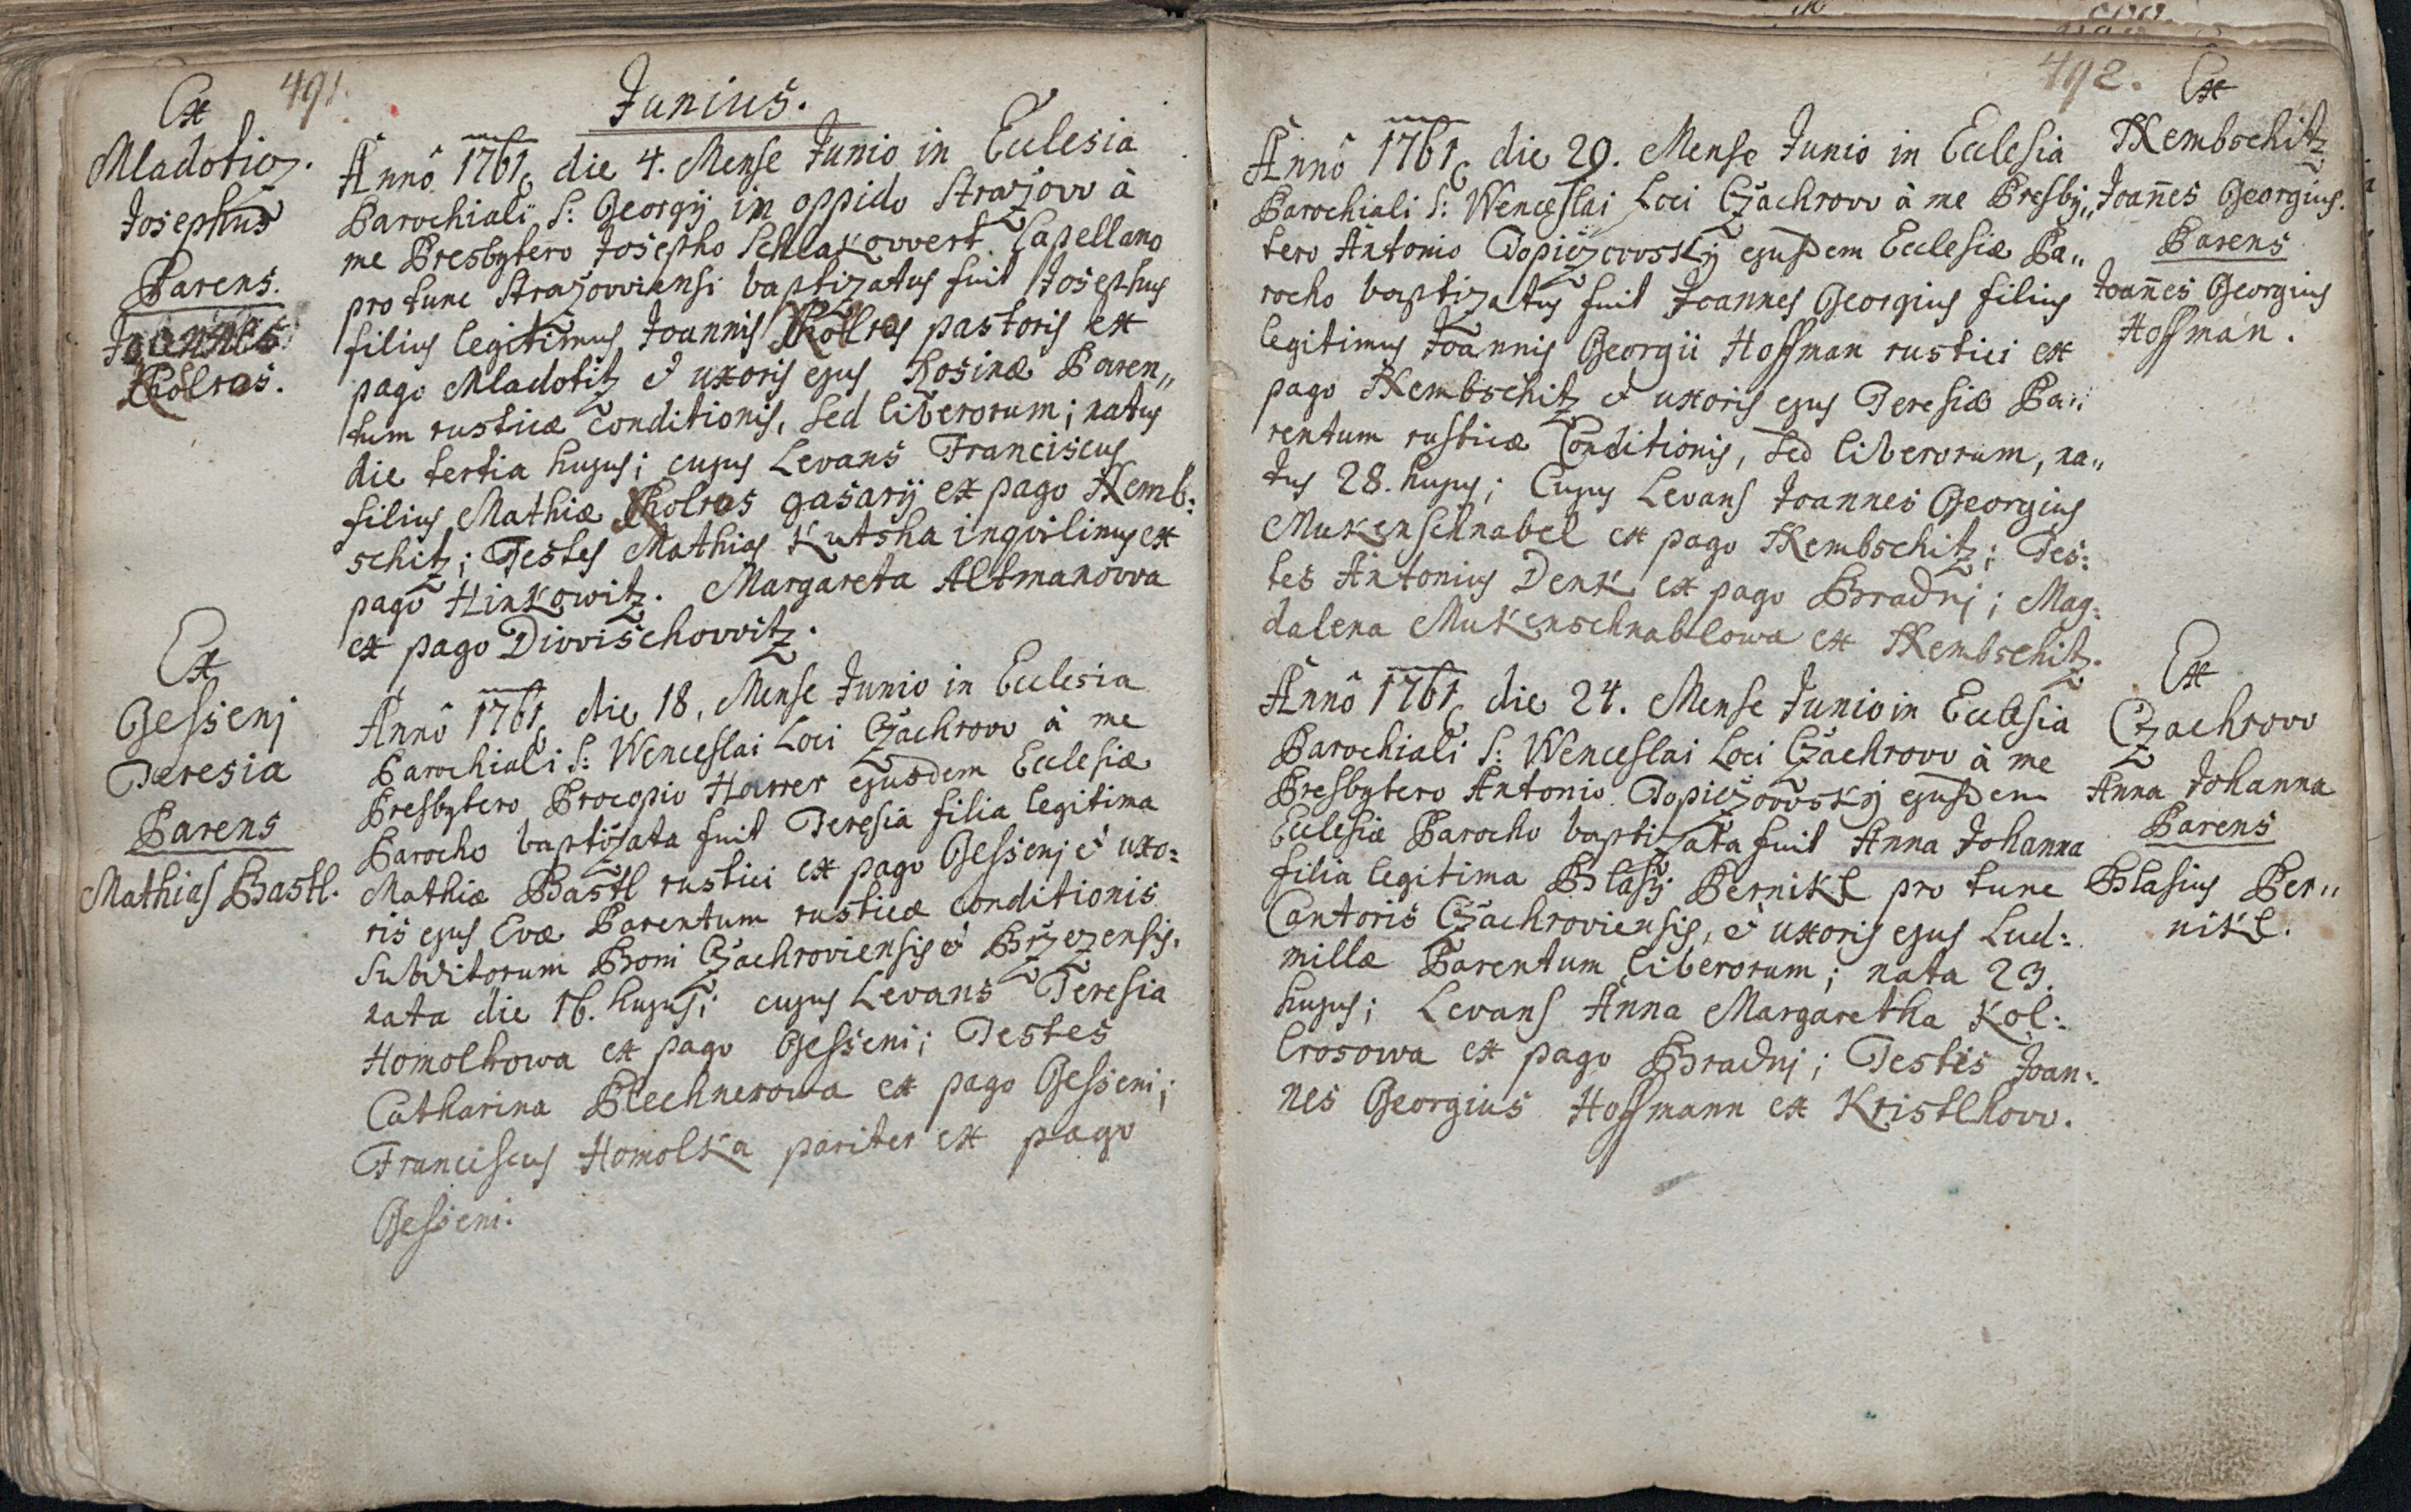 491.
Ex
Mladotiz.
Josephus
Parens.
Joannes
Kolros.
Junius.
Anno 1761 die 4. Mense Junio in Ecclesia
Parochiali S: Georgij in oppido Strazow à
me Presbytero Josepho Schlakowert Capellano
pro tunc Strazowiensi baptizatus fuit Josephus
filius legitimus Joannis Kolros pastoris ex
pago Mladotitz et uxoris ejus Rosinæ Paren„
tum rusticæ conditionis, sed liberorum; natus
die tertia hujus; cujus Levans Franciscus
filius Mathiæ Kolros gasarij ex pago Nemb:
schitz; Testes Mathias Kutsha inqvilinus ex
pago Hinkowitz. Margareta Altmanowa
ex pago Diwischowitz.
Ex
Gessenj
Teresia
Parens
Mathias Bastl.
Anno 1761 die 18. Mense Junio in Ecclesia
Parochiali S: Wenceslai Loci Czachrow à me
Presbytero Procopio Harrer ejusdem Ecclesiæ
Parocho baptizata fuit Teresia filia legitima
Mathiæ Bastl rustici ex pago Gessenj et uxo:
ris ejus Evæ Parentum rusticæ conditionis
Subditorum Boni Czachroviensis et Brzezensis.
nata die 16. hujus; cujus Levans Teresia
Homolkowa ex pago Gesseni; Testes
Catharina Plechnerowa ex pago Gesseni;
Franciscus Homolka pariter ex pago
Gesseni.
492.
Anno 1761 die 29. Mense Junio in Ecclesia
Parochiali S: Wenceslai Loci Czachrow à me Presby„
tero Antonio Topiczowskÿ ejusdem Ecclesiæ Pa„
rocho baptizatus fuit Joannes Georgius filius
legitimus Joannis Georgii Hoffman rustici ex
pago Nembschitz et uxoris ejus Teresiæ Pa„
rentum rusticæ Conditionis, sed liberorum, na„
tus 28. hujus; Cujus Levans Joannes Georgius
Mukenschnabel ex pago Nembschitz; Tes:
tes Antonius Denk ex pago Bradnj; Mag:
dalena Mukenschnablowa ex Nembschitz.
Ex
Nembschitz
Joañes Georgius.
Parens
Joañes Georgius
Hoffman.
Anno 1761 die 24. Mense Junio in Ecclesia
Parochiali S: Wenceslai Loci Czachrow à me
Presbytero Antonio Topiczowskÿ ejusdem
Ecclesiæ Parocho baptizata fuit Anna Johanna
filia legitima Blasij Pernikl pro tunc
Cantoris Czachroviensis, et uxoris ejus Lud:
millæ Parentum liberorum; nata 23.
hujus; Levans Anna Margaretha Kol:
lrosowa ex pago Bradnj; Testis Joan:
nes Georgius Hoffmann ex Kristlhow.
Ex
Czachrow
Anna Johanna
Parens
Blasius Per„
nikl.